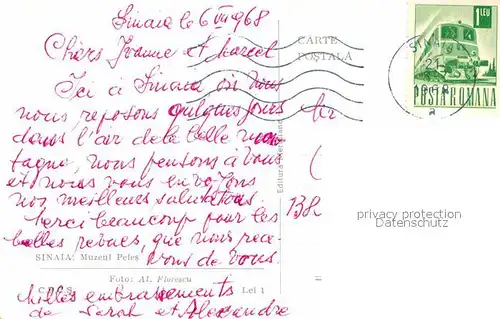 Sinaia le 6 VII 1968
Chers Jeanne et Marcel
Ici à Sinaia où nous
nous reposons quelques jours
dans l'air de la belle mon
tagne, nous pensons à vous
et nous vous envoyons
nos meilleurs salutations.
Merci beaucoup pour les
belles revues, que nous rece-
vons de vous.
Milles embrassements
de Sarah et Alexandre
CARTE
POȘTALĂ
1 LEU
POSTA ROMANA
SINAIA
21
1968
a
Editura Meridiane
privacy protection
Datenschutz
SINAIA: Muzeul Peleș
Foto: Al. Florescu
Lei 1